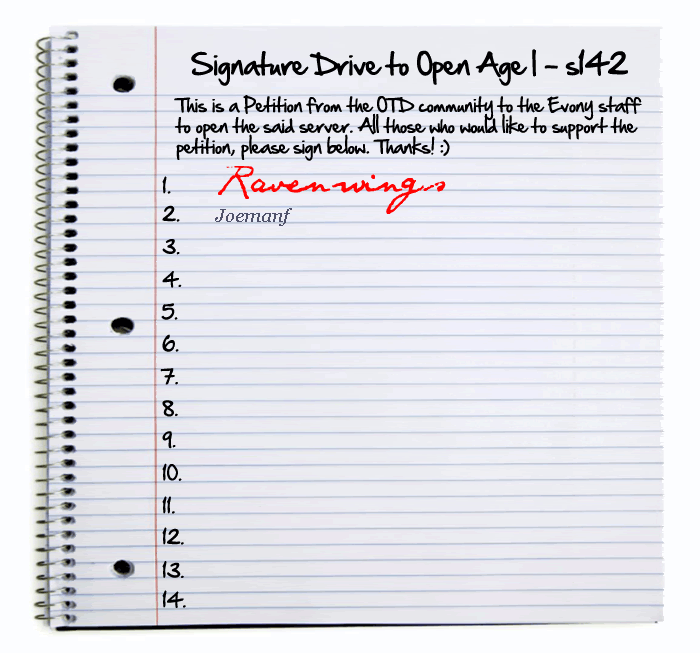 Signature Drive to Open Age 1 - s142
This is a Petition from the OTD community to the Evony staff
to open the said server. All those who would like to support the
petition, please sign below. Thanks! :)
1. Ravenwings
2. Joemanf
3.
4.
5.
6.
7.
8.
9.
10.
11.
12.
13.
14.